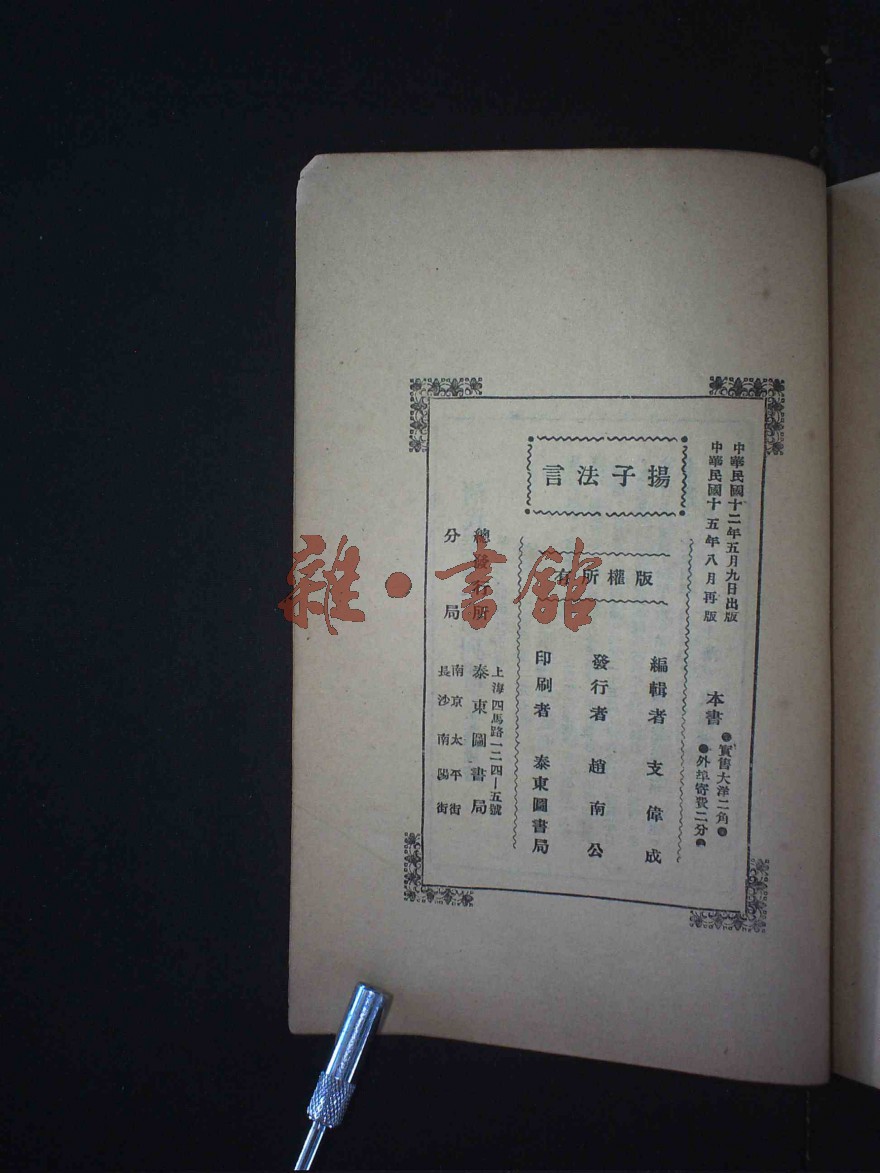 中華民國十二年五月九日出版
中華民國十五年八月再版
本書
●實售大洋二角●
●外埠寄費二分●
揚子法言
版權所有
編輯者 支偉成
發行者 趙南公
印刷者 泰東圖書局
上海四馬路一二四—五號
總發行所 泰東圖書局
分局
南京太平街
長沙南陽街
雜·書館